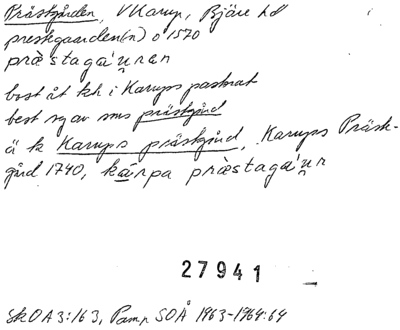 Prästgården, V Karup, Bjäre hd
prestgaarden(n) o 1570
præstagáu̯ran
bost åt kh i Karups pastorat
best sg av sms prästgård
ä k Karups prästgård, Karups Präst-
gård 1740, kárpa præstagáu̯r
27941
SkOA 3:163, Pamp SOÅ 1963-1964:64